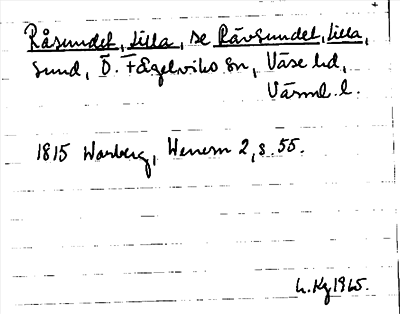 Råsundet, Lilla, se Rävsundet, Lilla,
sund, Ö. Fågelviks sn, Väse hd,
Värml. l.
1815 Warberg, Wenern 2, s. 55.
L. Kg 1965.